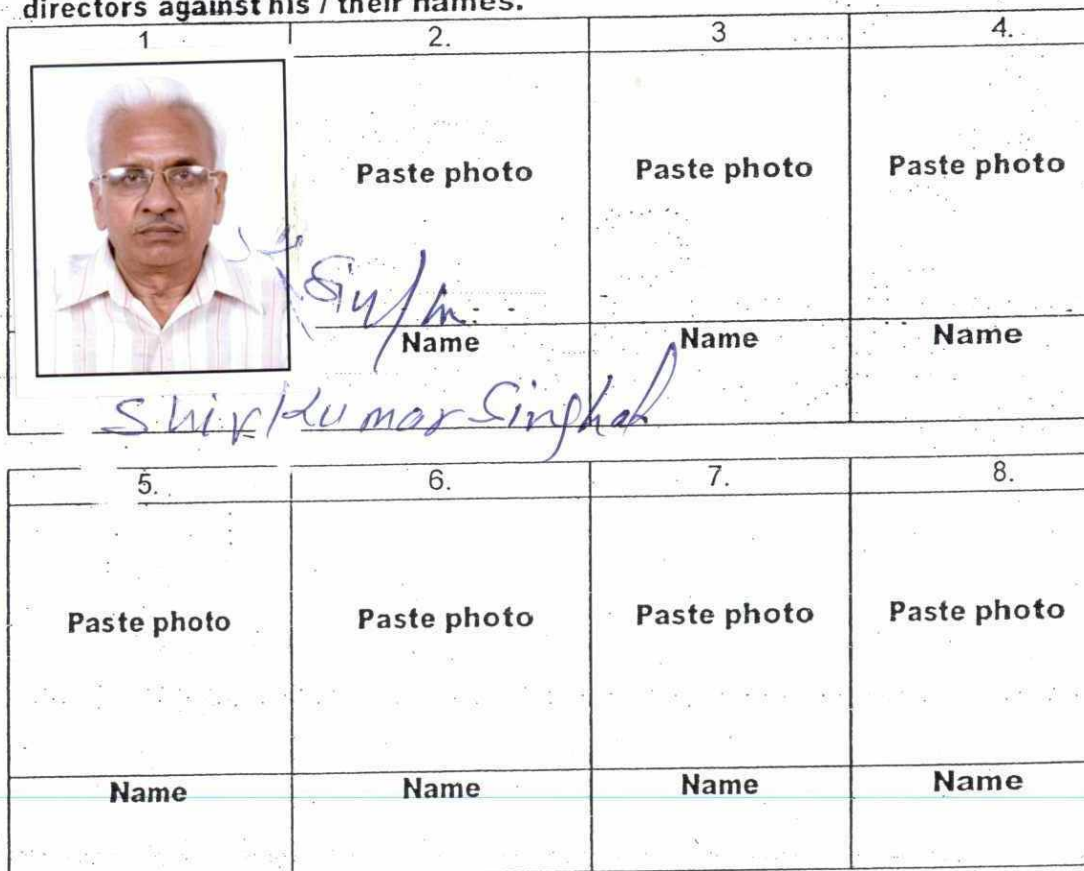 directors against his / their names.
1 2. 3 4.
Paste photo Paste photo Paste photo
Name Name Name
Shiv Kumar Singhal
5. 6. 7. 8.
Paste photo Paste photo Paste photo Paste photo
Name Name Name Name